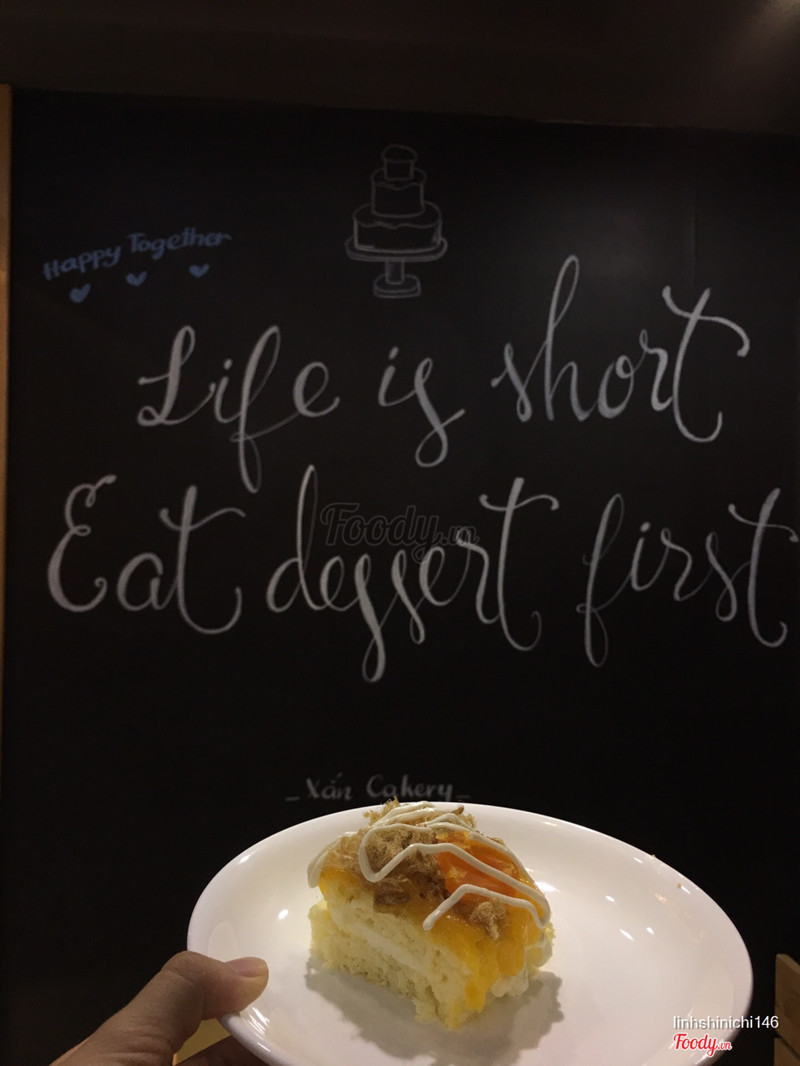 Happy Together
Life is short
Eat dessert first
Foody.vn
_Xắn Cakery_
linhshinichi146
Foody.vn